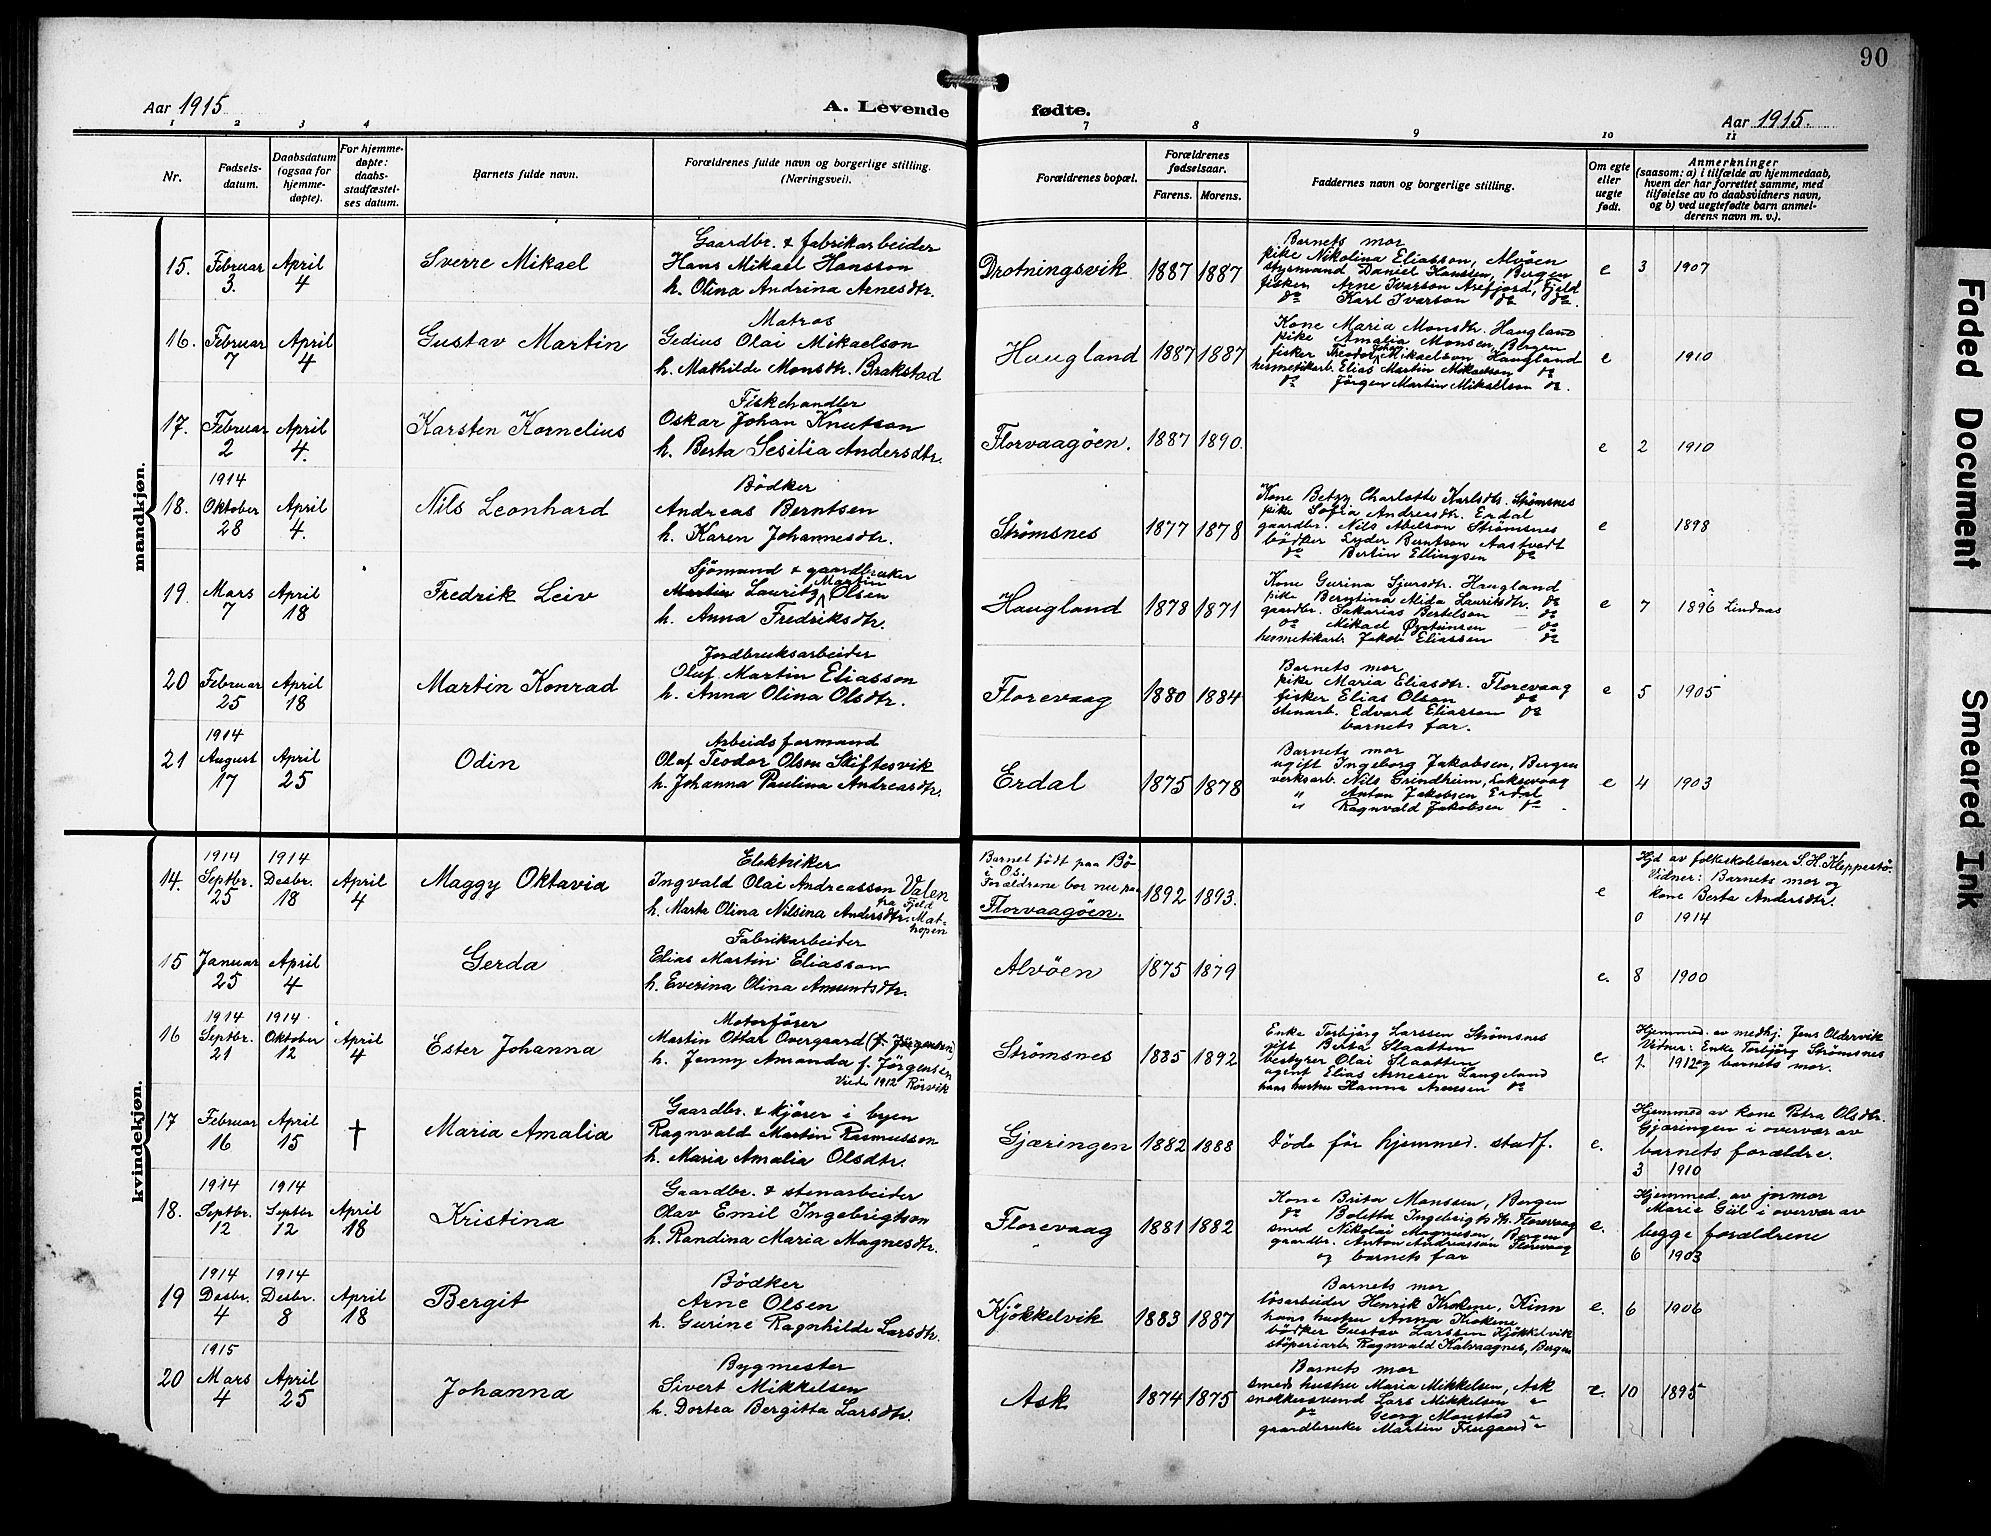 90
Aar 1915.
A. Levende fødte.
Aar 1915.
1 2 3 4 7 8 9 10 11
Nr.
Fødsels-
datum.
Daabsdatum
(ogsaa for
hjemme-
døpte).
For hjemme-
døpte:
daabs-
stadfæstel-
ses datum.
Barnets fulde navn.
Forældrenes fulde navn og borgerlige stilling.
(Næringsvei).
Forældrenes bopæl.
Forældrenes
fødselsaar.
Farens. Morens.
Faddernes navn og borgerlige stilling.
Om egte
eller
uegte
født.
Anmerkninger
(saasom: a) i tilfælde av hjemmedaab,
hvem der har forrettet samme, med
tilføielse av to daabsvidners navn,
og b) ved uegtefødte barn anmel-
derens navn m. v.).
mandkjøn.
15. Februar 3. April 4 Sverre Mikael
Gaardbr. & fabrikarbeider
Hans Mikael Hansson
h. Olina Andrina Arnesdtr.
Drotningsvik. 1887 1887
Barnets mor
pike Nikolina Eliasson, Alvöen
styrmand Daniel Hanssen, Bergen
fisker Arne Ivarson Arefjord, Fjeld
do Karl Ivarson do
e 3 1907
16. Februar 7 April 4 Gustav Martin
Matros
Gedius Olai Mikaelson
h. Mathilde Monsdtr. Brakstad
Haugland 1887 1887
Kone Maria Monsdtr. Haugland
pike Amalia Monsen, Bergen
fisker Teodor Johan Mikaelson Haugland
hermetikarb. Elias Martin Mikaelson do
do Jörgen Martin Mikaelson do.
e 1910
17. Februar 2 April 4. Karsten Kornelius
Fiskehandler
Oskar Johan Knutson
h. Berta Sesilia Andersdtr.
Florvaagöen. 1887 1890.
e 2 1910
18. 1914 Oktober 28 April 4. Nils Leonhard
Bödker
Andreas Berntsen
h. Karen Johannesdtr.
Strømsnes 1877 1878
Kone Betzy Charlotte Karlsdtr. Strømsnes
pike Sofia Andreasdtr. Erdal
gaardbr. Nils Abelson Strømsnes
bödker Eyder Berntson Aastvedt
do Bertin Ellingsen do
e 1898
19. Mars 7 April 18 Fredrik Leiv
Sjömand & gaardbruker
Martin Lauritz Martin Olsen
h. Anna Fredriksdtr.
Haugland 1878 1871
Kone Gurina Sjursdtr. Haugland
pike Berntina Mida Lauriksdtr. do
gaardbr. Sakarias Bertelsen do
do Mikael Øysteinsen do
hermetikarb. Jakob Eliassen do
e 7 1896 Lindaas
20 Februar 25 April 18 Martin Konrad
Jordbruksarbeider
Oluf Martin Eliasson
h. Anna Olina Olsdtr.
Florevaag 1880 1884
Barnets mor
pike Maria Eliasdtr. Florevaag
fisker Elias Olson do
stenarb. Edvard Eliasson do
barnets far.
e 5 1905
21 1914 August 17 April 25 Odin
Arbeidsformand
Olaf Teodor Olson Skiftesvik
h. Johanna Paulina Andreasdtr.
Erdal 1875 1878
Barnets mor
ugift Ingeborg Jakobsen, Bergen
verksarb. Nils Grindheim, Laksevaag
" Anton Jakobsen Erdal
" Ragnvald Jakobsen do
e 4 1903
kvindekjøn.
14. 1914 Septbr. 25 1914 Desbr. 18 April 4 Maggy Oktavia
Elektriker
Ingvald Olai Andreasson Valen
fra Fjeld
h. Marta Olina Nilsina Andersdtr. Mat-
hopen
Barnet födt paa Bö
i Os.
Forældrene bor nu paa
Florvaagöen.
1892 1893.
e
Hjd av folkeskolelærer S. H. Kleppestö.
Vidner: Barnets mor og
kone Berta Andersdtr.
0 1914
15 Januar 25 April 4 Gerda
Fabrikarbeider
Elias Martin Eliasson
h. Everina Olina Amundsdtr.
Alvöen 1875 1879
e. 8 1900
16 1914 Septbr. 21 1914 Oktober 12 April 4 Ester Johanna
Motorfører
Martin Ottar Overgaard (f. Jörgensen)
h. Jenny Amanda f. Jörgensen
Viede 1912 Rörvik
Strømsnes 1885 1892
Enke Torbjörg Larssen Strømsnes
gift Berta Slaatten
bestyrer Olai Slaatten
agent Elias Arnesen Langeland
hans hustru Hanna Arnesen do
e.
Hjemmed. av medhj. Jens Oldervik
Vidner: Enke Torbjörg Strømsnes
1912 og barnets mor.
17 Februar 16 April 15 † Maria Amalia
Gaardbr. & kjører i byen
Ragnvald Martin Rasmusson
h. Maria Amalia Olsdtr.
Gjæringen 1882 1888
Döde för hjemmed. stadf.
e.
Hjemmed av kone Petra Olsdtr.
Gjæringen i overvær av
barnets forældre.
3 1910
18. 1914 Septbr. 12 1914 Septbr 12 April 18 Kristina
Gaardbr. & stenarbeider
Olav Emil Ingebrigtson
h. Randina Maria Magnesdtr.
Florevaag 1881 1882
Kone Brita Monssen, Bergen
do Boletta Ingebrigtsdtr. Florevaag
smed Nikolai Magnusen, Bergen
gaardbr. Anton Andreasson Florvaag
og barnets far
e.
Hjemmed. av jormor
Marie Gül i overvær av
begge forældrene
6 1903
19 1914 Desbr. 4 1914 Desbr. 8 April 18 Bergit
Bödker
Arne Olsen
h. Gurine Ragnhilde Larsdtr.
Kjökkelvik 1883 1887
Barnets mor
lösarbeider Henrik Krokene, Kinn
hans hustru Anna Krokene
bödker Gustav Larssen Kjökkelvik
stöperiarb. Ragnvald Kalvaagnes, Bergen
e. 6 1906
20 1915 Mars 4 April 25 Johanna
Bygmester
Sivert Mikkelsen
h. Dortea Bergitta Larsdtr.
Ask 1874 1875
Barnets mor
smeds hustru Maria Mikkelsen, Ask
snekkersvend Lars Mikkelsen "
do Georg Monstad
gaardbruker Martin Frugaard "
e. 10 1895
Faded Document
Smeared Ink